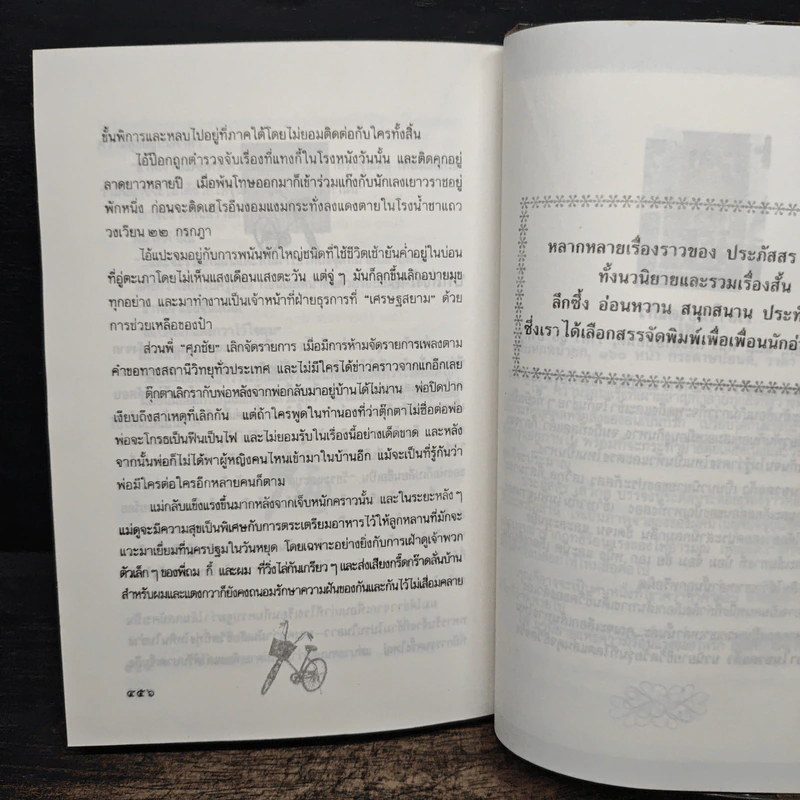 ขั้นพิการและหลบไปอยู่ที่ภาคใต้โดยไม่ยอมติดต่อกับใครทั้งสิ้น
ไอ้ป๊อกถูกตำรวจจับเรื่องที่แทงกี้ในโรงหนังวันนั้น และติดคุกอยู่
ลาดยาวหลายปี เมื่อพ้นโทษออกมาก็เข้าร่วมแก๊งกับนักเลงเยาวราชอยู่
พักหนึ่ง ก่อนจะติดเฮโรอีนงอมแงมกระทั่งลงแดงตายในโรงน้ำชาแถว
วงเวียน ๒๒ กรกฎา
ไอ้แปะจมอยู่กับการพนันพักใหญ่ชนิดที่ใช้ชีวิตเช้ายันค่ำอยู่ในบ่อน
ที่อู่ตะเภาโดยไม่เห็นแสงเดือนแสงตะวัน แต่จู่ ๆ มันก็ลุกขึ้นเลิกอบายมุข
ทุกอย่าง และมาทำงานเป็นเจ้าหน้าที่ฝ่ายธุรการที่ “เศรษฐสยาม” ด้วย
การช่วยเหลือของป๋า
ส่วนพี่ “ศุภชัย” เลิกจัดรายการ เมื่อมีการห้ามจัดรายการเพลงตาม
คำขอทางสถานีวิทยุทั่วประเทศ และไม่มีใครได้ข่าวคราวจากแกอีกเลย
ตุ๊กตาเลิกรากับพ่อหลังจากพ่อกลับมาอยู่บ้านได้ไม่นาน พ่อปิดปาก
เงียบถึงสาเหตุที่เลิกกัน แต่ถ้าใครพูดในทำนองที่ว่าตุ๊กตาไม่ซื่อต่อพ่อ
พ่อจะโกรธเป็นฟืนเป็นไฟ และไม่ยอมรับในเรื่องนี้อย่างเด็ดขาด และหลัง
จากนั้นพ่อก็ไม่ได้พาผู้หญิงคนไหนเข้ามาในบ้านอีก แม้จะเป็นที่รู้กันว่า
พ่อมีใครต่อใครอีกหลายคนก็ตาม
แม่กลับแข็งแรงขึ้นมากหลังจากเจ็บหนักคราวนั้น และในระยะหลัง ๆ
แม่ดูจะมีความสุขเป็นพิเศษกับการตระเตรียมอาหารไว้ให้ลูกหลานที่มักจะ
แวะมาเยี่ยมที่นครปฐมในวันหยุด โดยเฉพาะอย่างยิ่งกับการเฝ้าดูเจ้าพวก
ตัวเล็ก ๆ ของพี่ถม กี้ และผม ที่วิ่งไล่กันเกรียว ๆ และส่งเสียงกรี๊ดกร๊าดลั่นบ้าน
สำหรับผมและแดงกวาก็ยังคงถนอมรักษาความฝันของกันและกันไว้ไม่เสื่อมคลาย
๔๕๖
หลากหลายเรื่องราวของ ประภัสสร
ทั้งนวนิยายและรวมเรื่องสั้น
ลึกซึ้ง อ่อนหวาน สนุกสนาน
ซึ่งเราได้เลือกสรรจัดพิมพ์เพื่อเพื่อนนัก